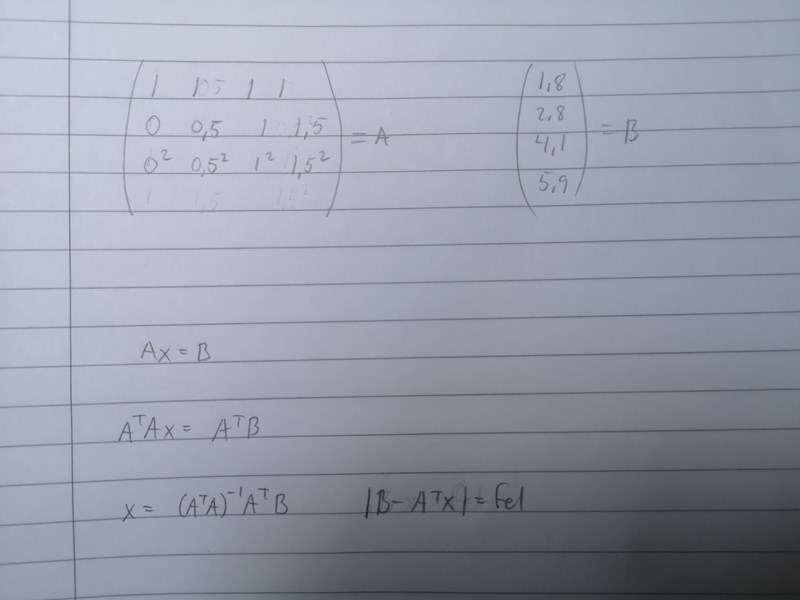 1 1 1 1
0 0,5 1 1,5 = A
0² 0,5² 1² 1,5²
1,8
2,8
4,1 = B
5,9
Ax = B
AᵀAx = AᵀB
x = (AᵀA)⁻¹AᵀB |B-Aᵀx| = Fel